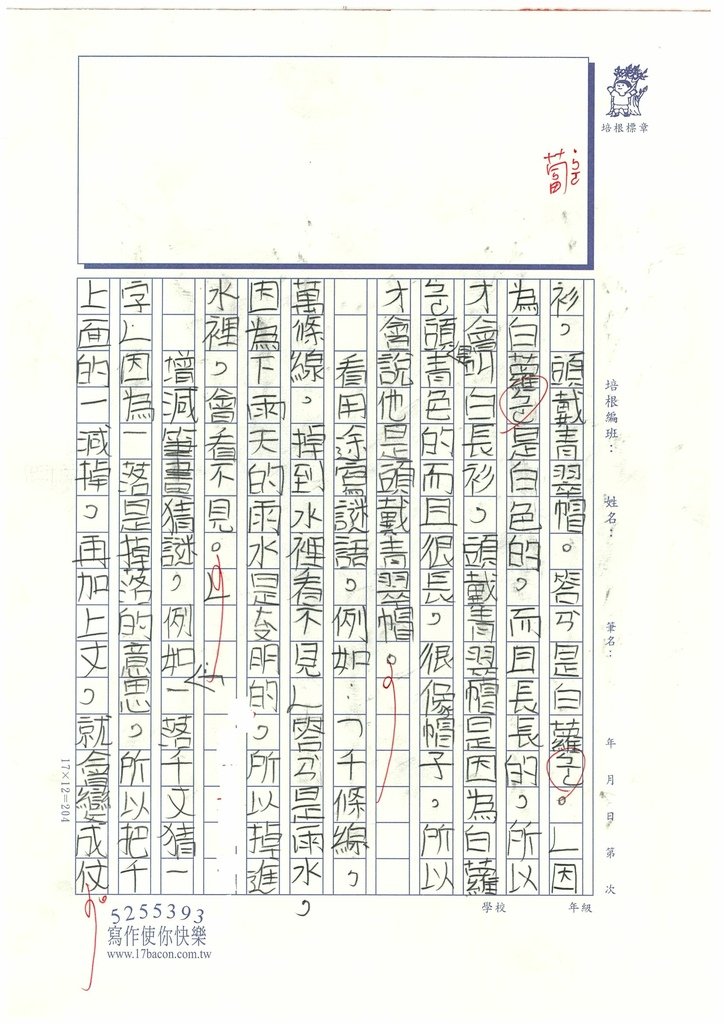 培根標章
蔔ㄅㄛ˙
衫，頭戴青翠帽。答ㄢˋ是白蘿ㄅㄛ˙。」因
為白蘿ㄅㄛ˙是白色的，而且長長的，所以
才會叫白長衫，頭戴青翠帽是因為白蘿
ㄅㄛ˙頭青色的而且很長，很像帽子，所以
才會說他是頭戴青翠帽。
看用途寫謎語，例如：「千條線，
萬條線，掉到水裡看不見」答ㄢˋ是雨水，
因為下雨天的雨水是透明的，所以掉進
水裡，會看不見。」
增減筆畫猜謎，例如：一落千丈猜一
字」因為一落是掉落的意思，所以把千
上面的一減掉，再加上丈，就會變成仗
培根編班： 姓名： 筆名： 年 月 日 第 次
17×12=204
學校 年級
5255393
寫作使你快樂
www.17bacon.com.tw